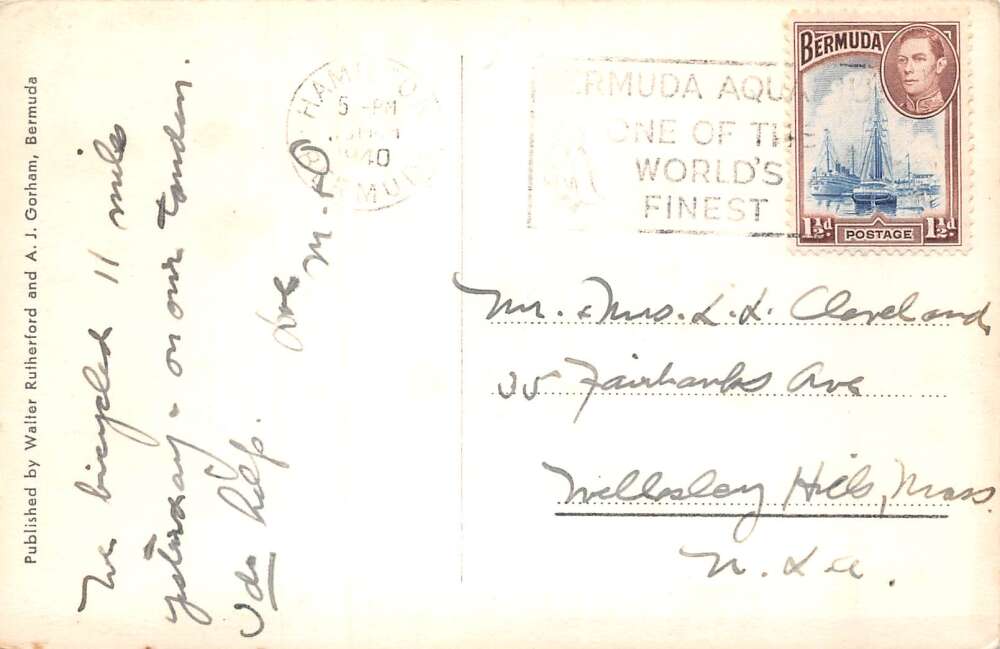 Published by Walter Rutherford and A. J. Gorham, Bermuda
We bicycled 11 miles
yesterday - on our tandem.
I do help.
Love
M-D
HAMILTON
5 - PM
1940
BERMUDA
BERMUDA AQUARIUM
ONE OF THE
WORLD'S
FINEST
BERMUDA
1½d POSTAGE 1½d
Mr. & Mrs. L. L. Cleveland
35 Fairbanks Ave
Wellesley Hills, Mass